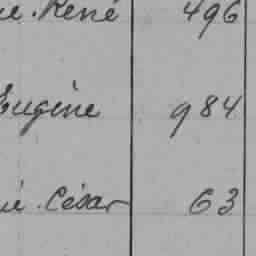 René 496
Eugène 984
César 63